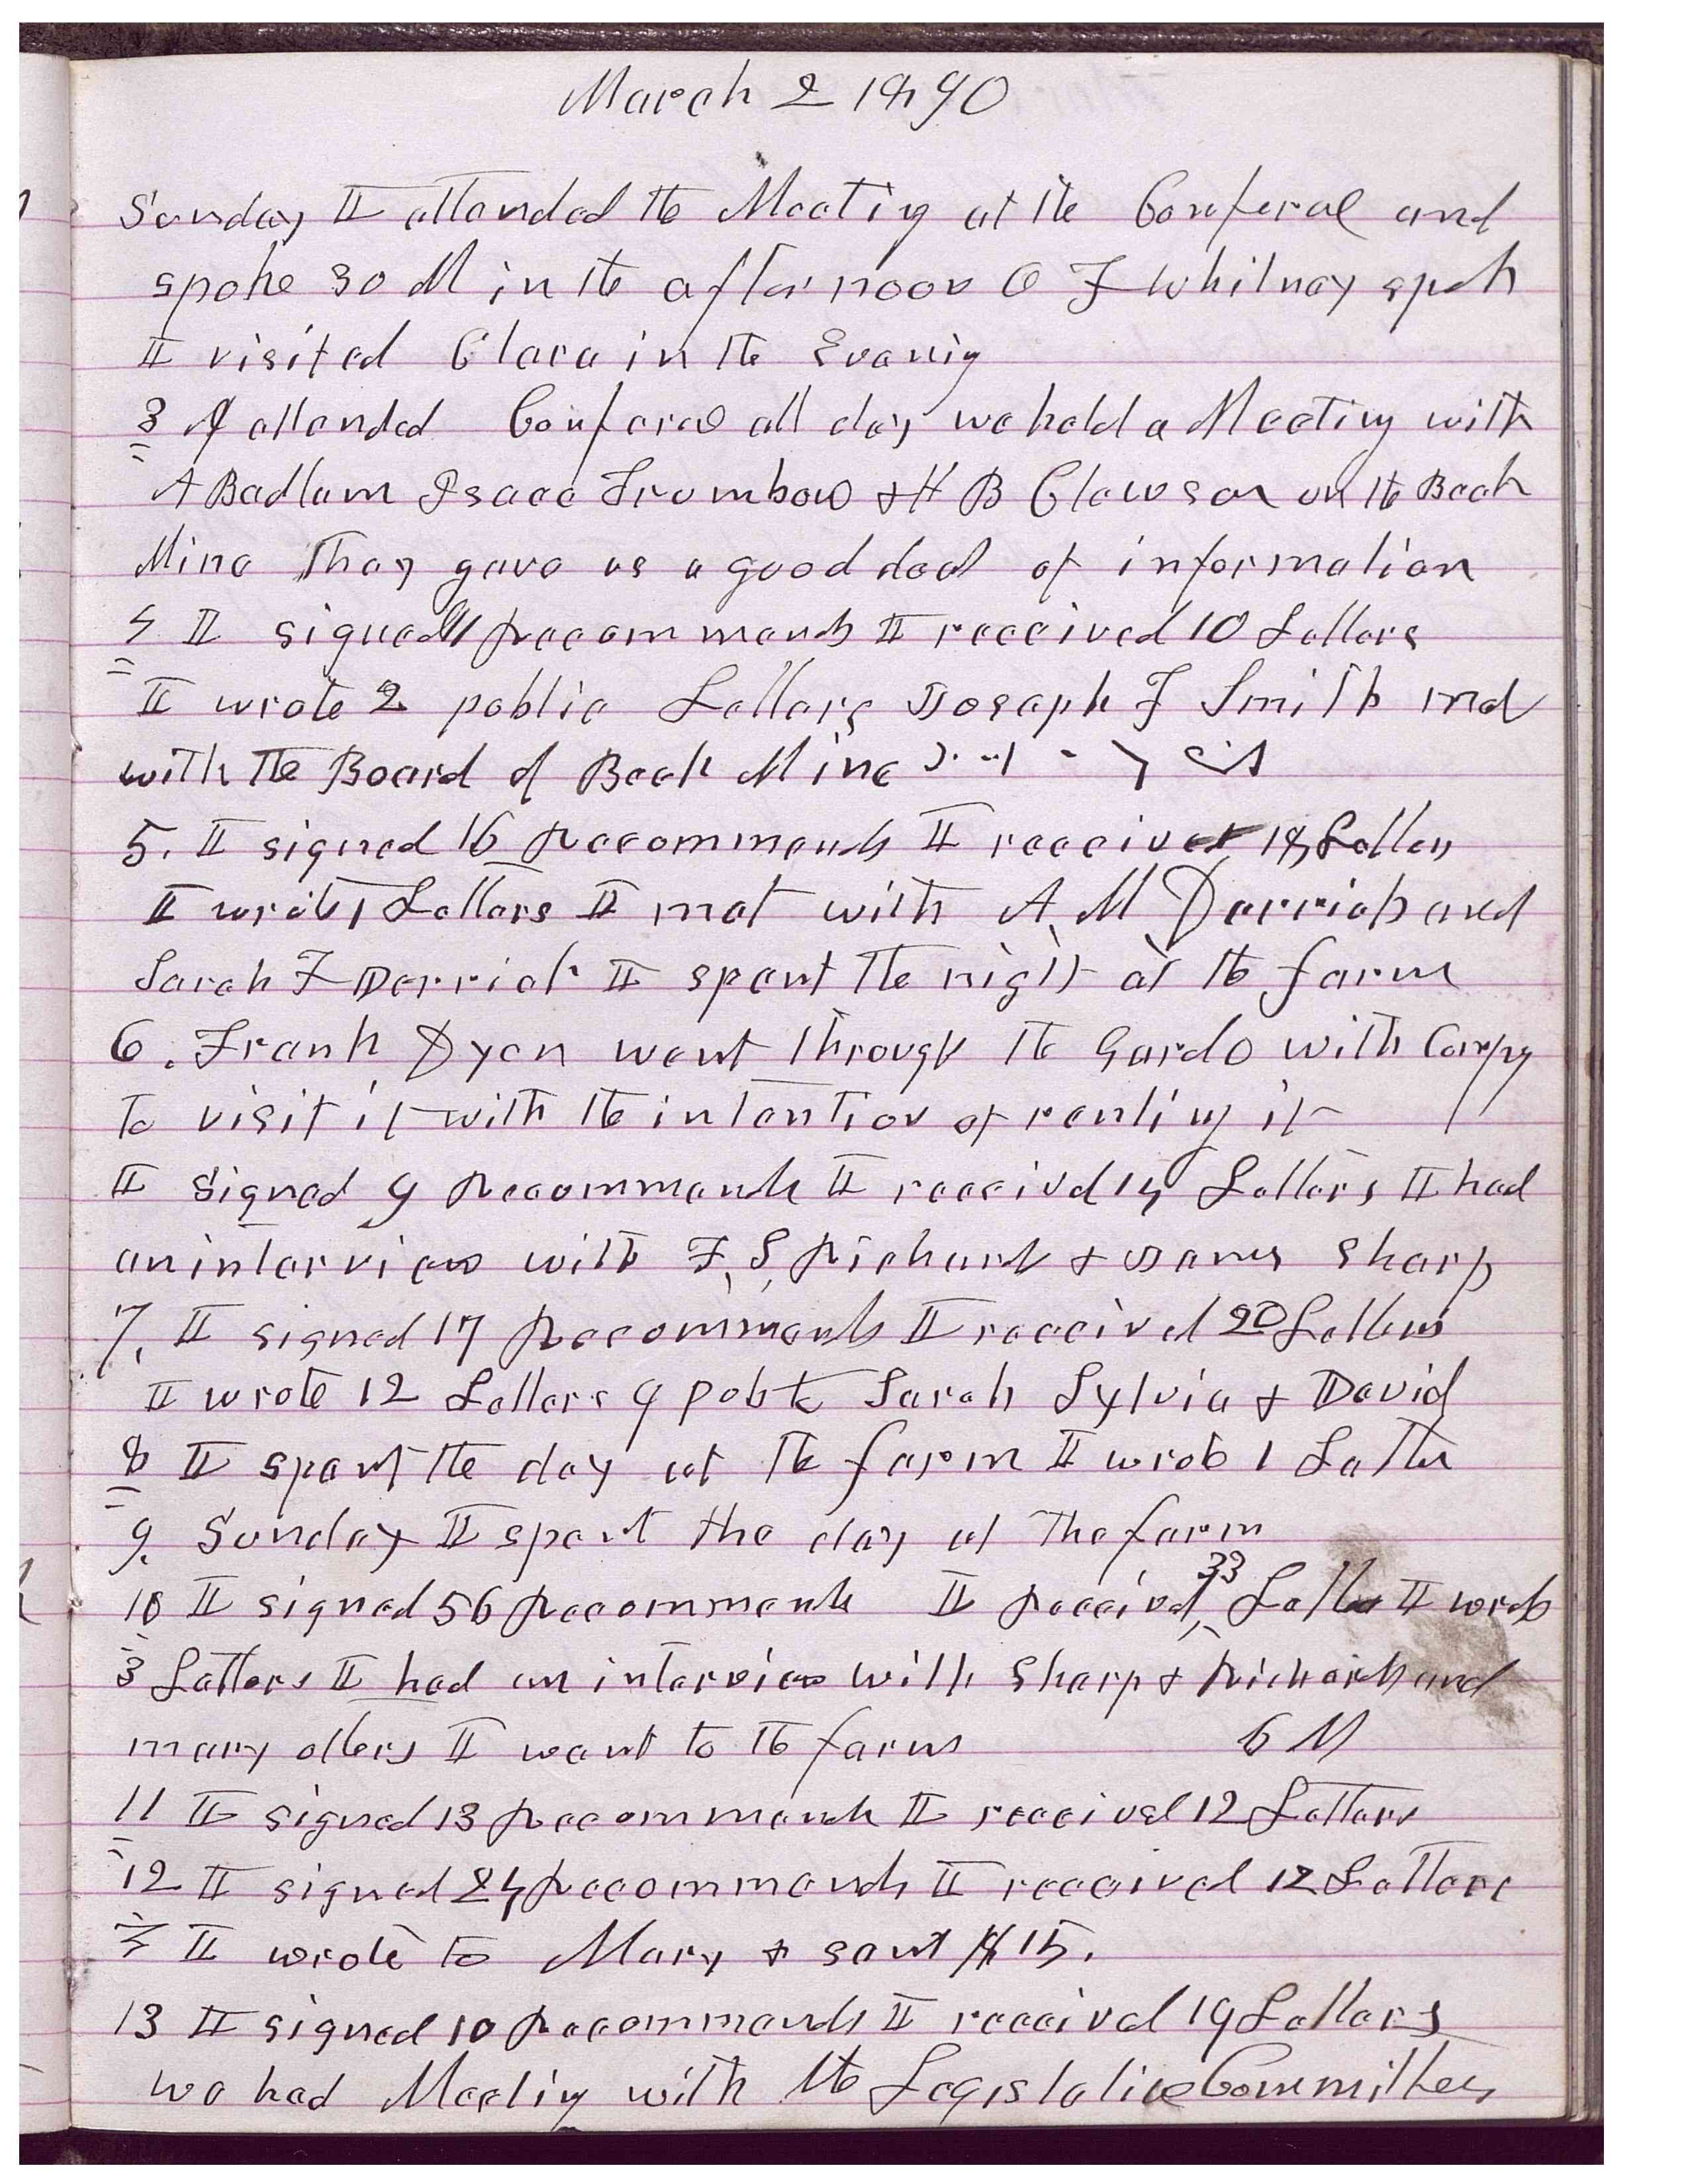 March 2 1890
Sunday I attended the Meeting at the Conferac and
spoke 30 M in the afternoon O F Whitney spoh
I visited Clara in the Evanig
3 I attended Conferac all day we held a Meeting with
A Badlam Isaac Trumbow & H B Clawson on the Beck
Mine They gave us a good deal of information
4 I signed recommends I received 10 Letters
I wrote 2 public Letters Joseph F Smith met
with the Board of Beck Mine
5. I signed 16 Recommends I received 18 Letters
I wrote 1 Letters I met with A M Derrick and
Sarah F Derrick I spent the night at the farm
6. Frank Dyer went through the Gardo with Compny
to visit it with the intention of renting it
I signed 9 Recommends I receivd 14 Letters I had
an interview with F, S, Richards & James Sharp
7. I signed 17 Recommends I receivd 20 Letters
I wrote 12 Letters 9 Pub to Sarah Sylvia & David
8 I spent the day at the farm I wrote 1 Letter
9. Sunday I spent the day at the farm
10 I signed 56 Recommends I Receivd 33 Letters I wrote
3 Letters I had an interview with Sharp & Richards and
many others I went to the farm 6 M
11 I signed 13 Recommends I received 12 Letters
12 I signed 24 Recommends I received 12 Letters
I wrote to Mary & sent $15.
13 I signed 10 Recommends I receivd 19 Letters
we had Meetig with the Legislative Committees